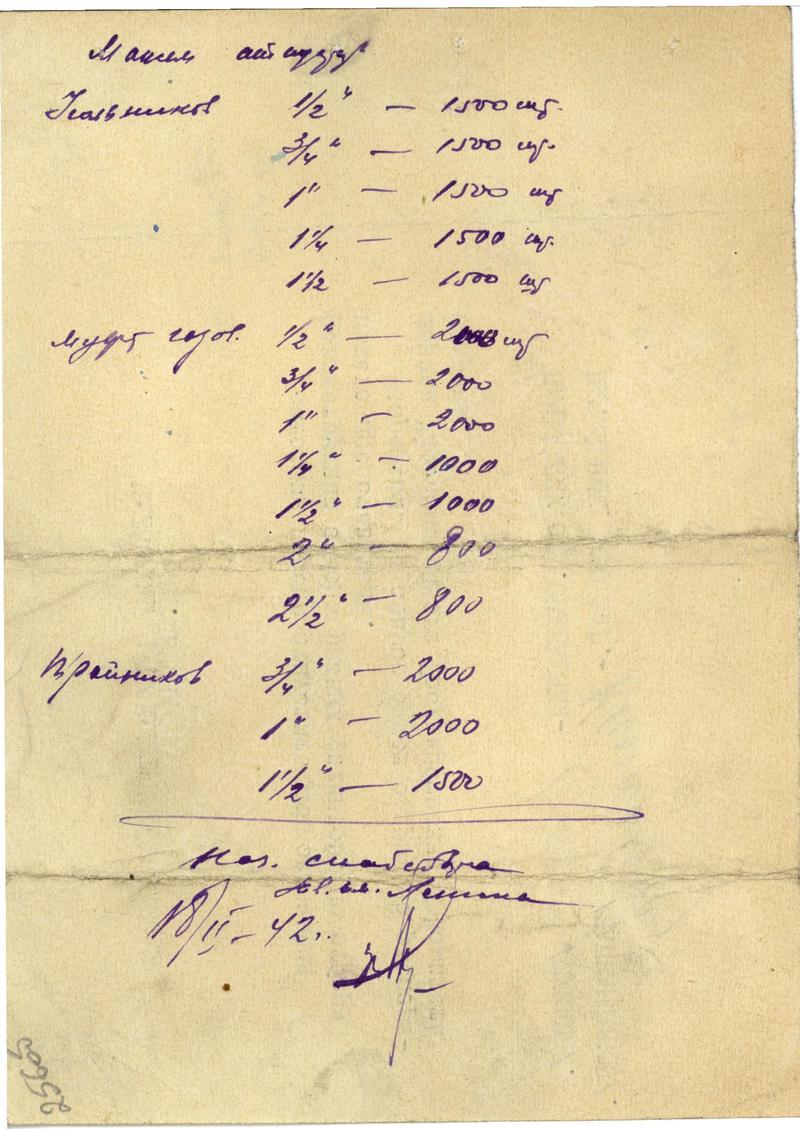 Можем отгруз
Угольников 1/2" — 1500 шт.
3/4" — 1500 шт.
1" — 1500 шт
1 1/4 — 1500 шт.
1 1/2 — 1500 шт
Муфт газов. 1/2" — 2000 шт
3/4" — 2000
1" — 2000
1 1/4" — 1000
1 1/2" — 1000
2" — 800
2 1/2" — 800
Тройников 3/4" — 2000
1" — 2000
1 1/2" — 1500
Нач. снабсбыта
им. Ленина
18/II-42г.
25605